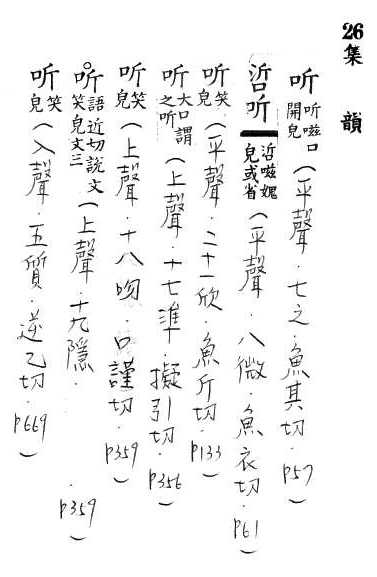 26集韻
听听嗞口開皃（平聲．七之．魚其切．P57）
㕤听㕤嗞媿皃或省（平聲．八微．魚衣切．P61）
听笑皃（平聲．二十一欣．魚斤切．P133）
听大口謂之听（上聲．十七準．擬引切．P356）
听笑皃（上聲．十八吻．口謹切．P359）
听語近切說文笑皃文三（上聲．十九隱．．P359）
听笑皃（入聲．五質．逆乙切．P669）